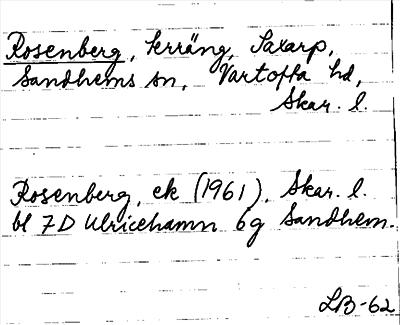 Rosenberg, terräng, Saxarp,
Sandhems sn, Vartofta hd,
Skar. l.
Rosenberg, ek (1961), Skar. l.
bl 7D Ulricehamn 6g Sandhem.
LB-62